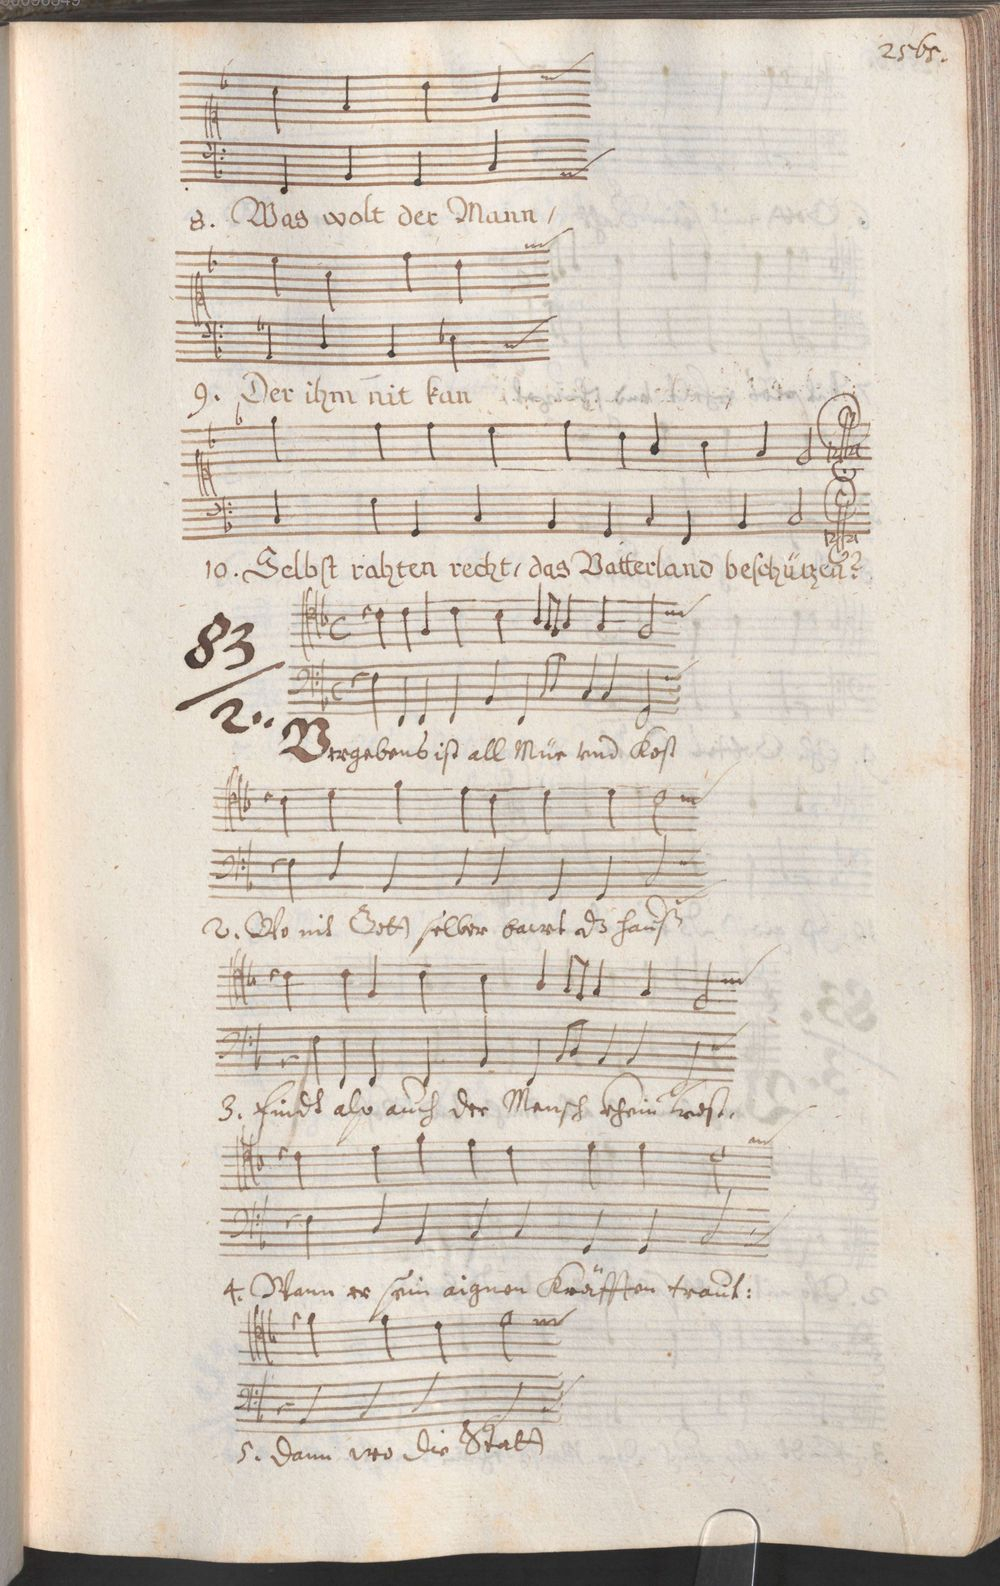 2565.
8. Was wolt der Mann /
9. Der ihm nit kan
10. Selbst rahten recht, das Vatterland beschützen?
83
2..
Vergebens ist all Müe vnd Kost
2. Wo nit Gott selber bawt dz hauß
3. Findt also auch der Mensch khein trost.
4. Wann er sein aignen Kräfften traut:
5. Dann wo die Statt